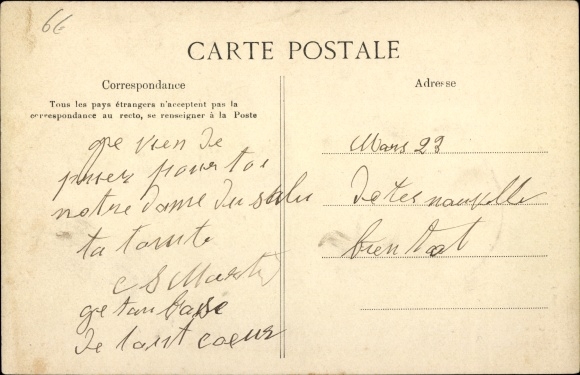 66
CARTE POSTALE
Correspondance
Tous les pays étrangers n'acceptent pas la
correspondance au recto, se renseigner à la Poste
ge vien de
prier pour toi
notre dame du salu
ta tante
ge tan base
de tout coeur
Adresse
Mars 23
de tes nouvelle
bientot